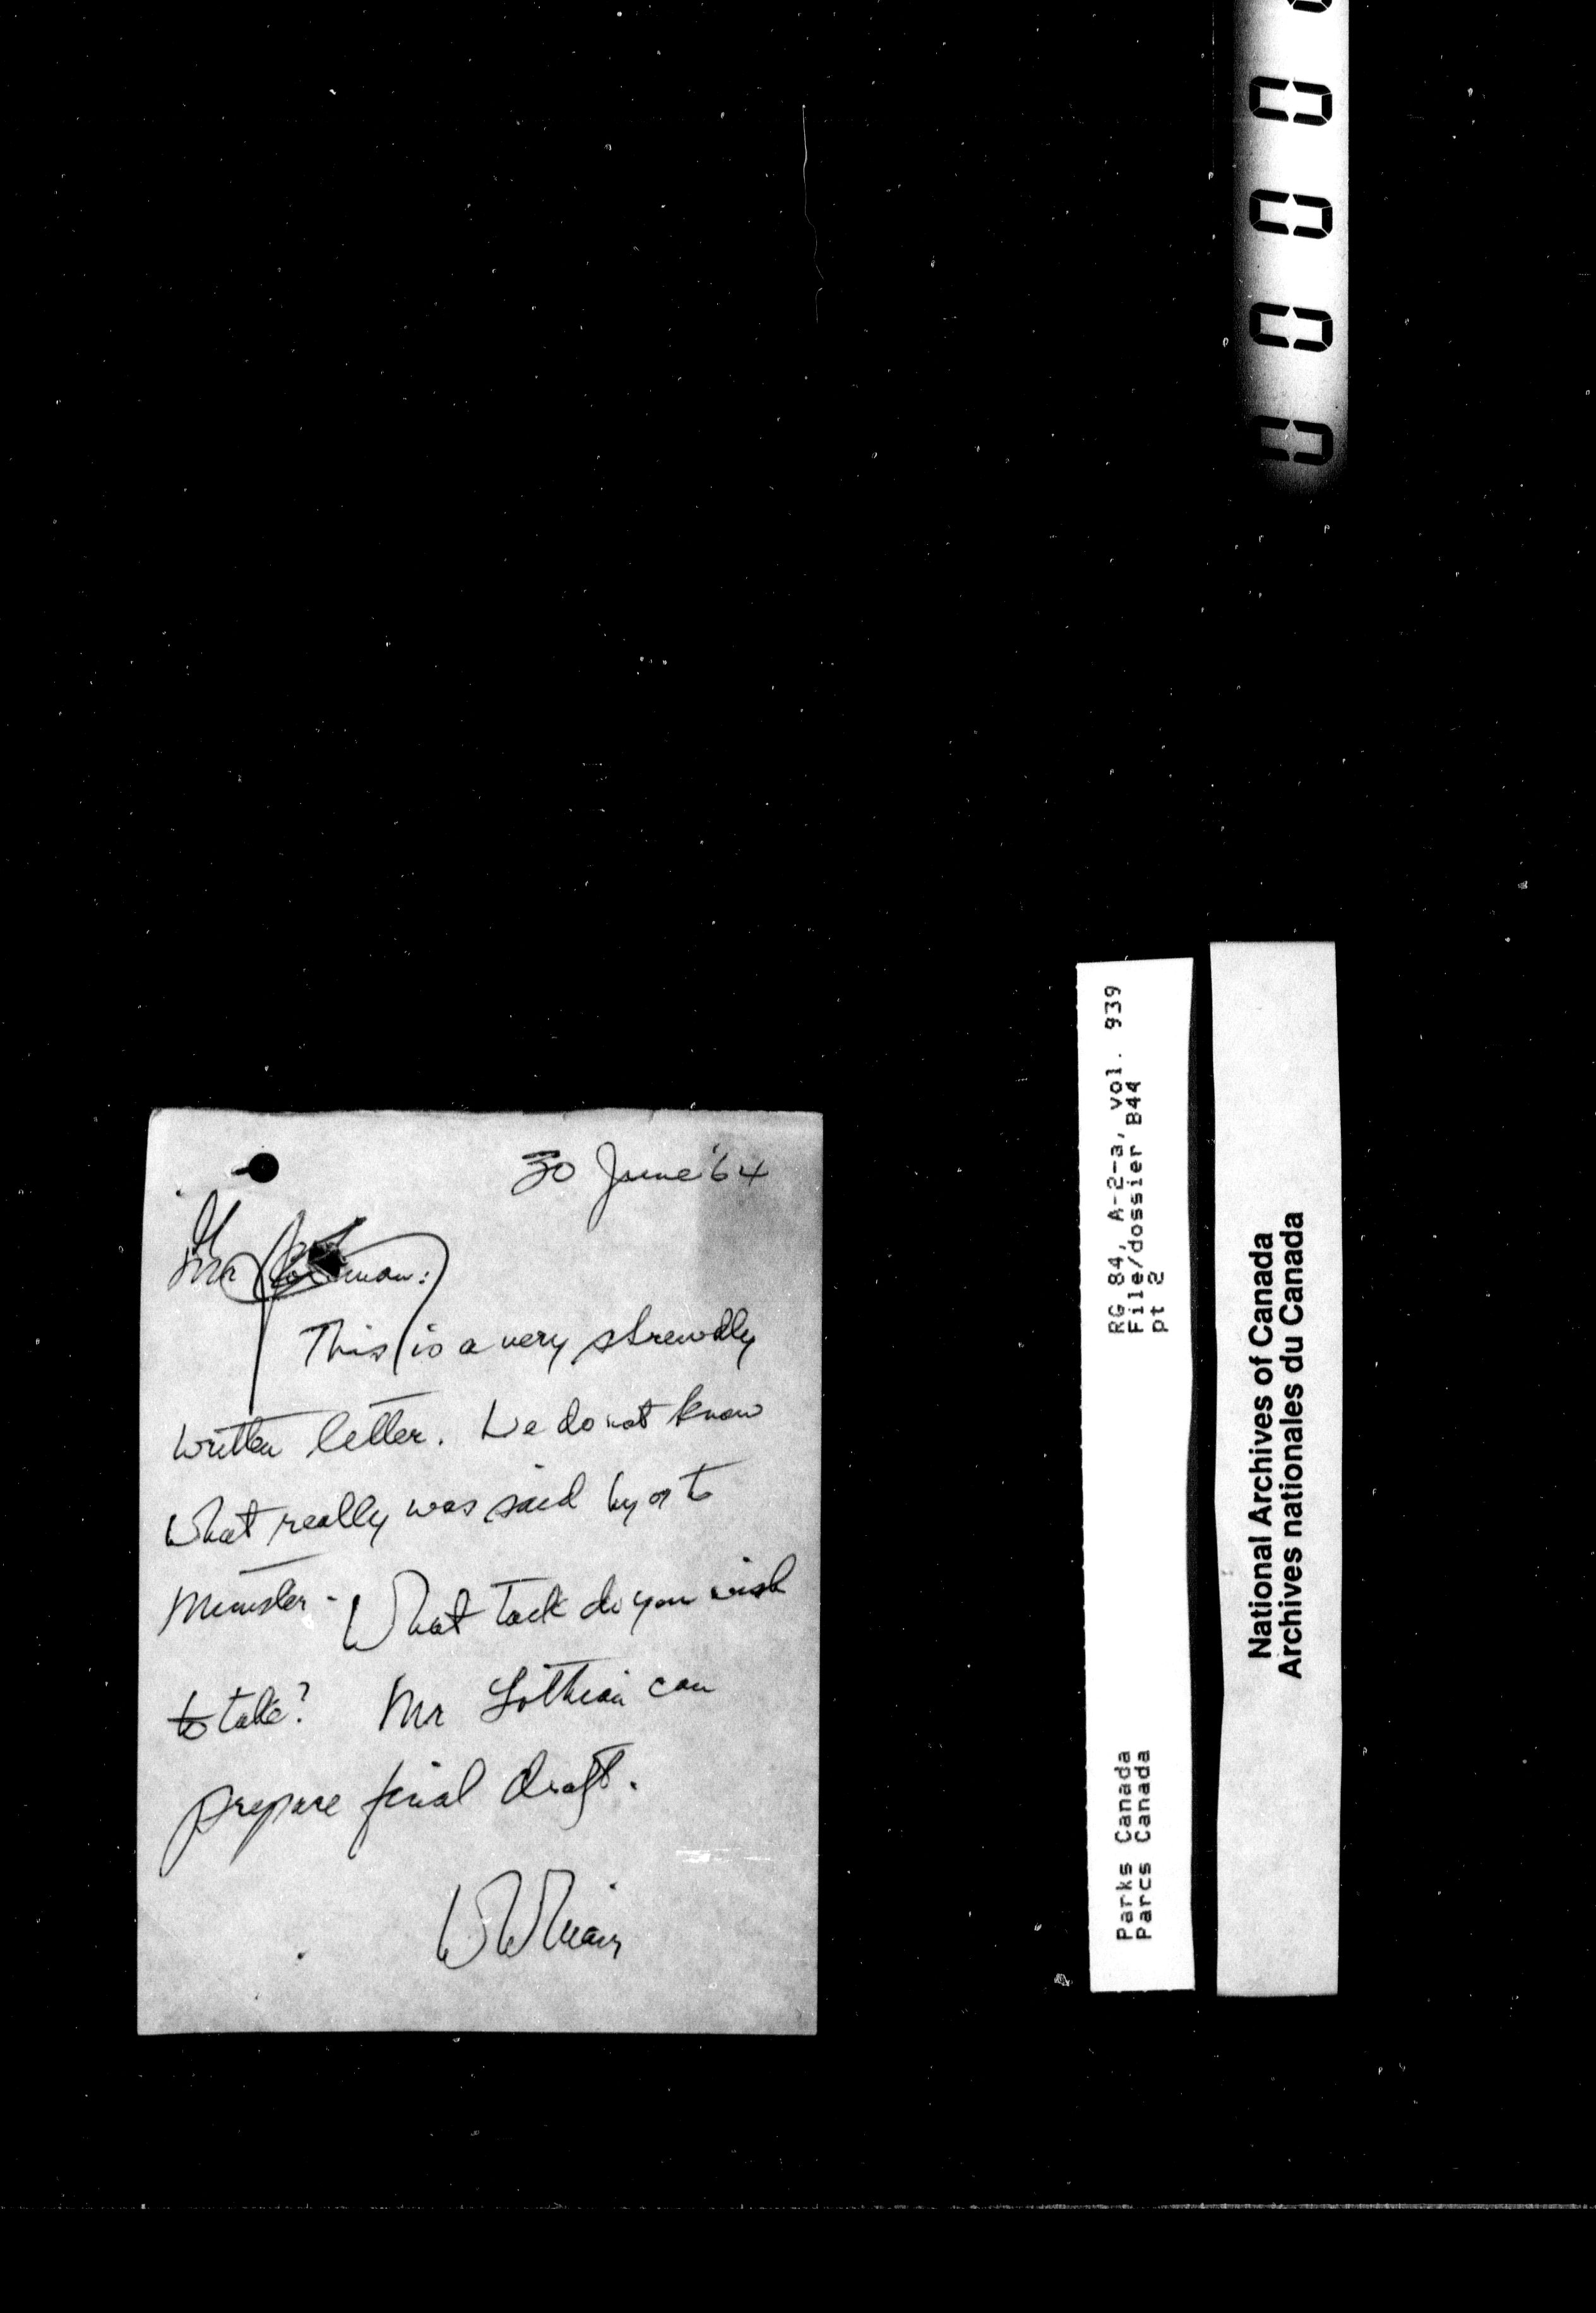 30 June '64
Mr
This is a very shrewdly
written letter. We do not know
what really was said by or to
Minister - What tack do you wish
to take? Mr Lothian can
prepare final draft.
RG 84, A-2-a, vol. 939
File/dossier B44
pt 2
Parks Canada
Parcs Canada
National Archives of Canada
Archives nationales du Canada
0 0 0 0